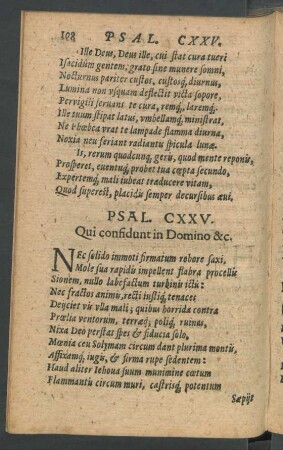 108 PSAL. CXXV.
Ille Deus, Deus ille, cui stat cura tueri
Isacidûm gentem, grato sine munere somni,
Nocturnus pariter custos, custosq́, diurnus,
Lumina non vsquam deflectit victa sopore,
Pervigili servans te cura, remq́, laremq́.
Ille tuum stipat latus, vmbellamq́, ministrat,
Ne Phœbea vrat te lampade flamma diurna,
Noxia neu feriant radiantu spicula lunæ.
Is, rerum quodcunq́, geris, quod mente reponis,
Prosperet, euentuq́, probet tua cœpta secundo,
Expertemq́, mali iubeat traducere vitam,
Quod superest, placidu semper decursibus æui.
PSAL. CXXV.
Qui confidunt in Domino &c.
NEc solido immoti firmatum robore saxi,
Mole sua rapidi impellent flabra procellis
Sionem, nullo labefactum turbinis ictu:
Nec fractos animu, recti iustiq́, tenaces
Deijciet vis vlla mali; quibus horrida contra
Prœlia ventorum, terraq́; poliq́, ruinas,
Nixa Deo perstat spes & fiducia solo,
Mœnia ceu Solymam circum dant plurima montis,
Affixamq́, iugis, & firma rupe sedentem:
Haud aliter Iehoua suum munimine cœtum
Flammantis circum muri, castrisq́, potentum
Sæpijt